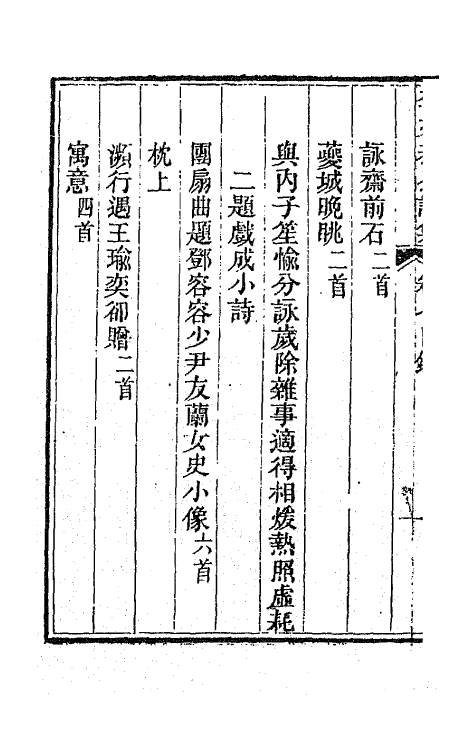 詠齋前石二首
夔城晚眺二首
與內子笙愉分詠歲除雜事適得相煖熱照虛耗
二題戲成小詩
團扇曲題鄧容容少尹友蘭女史小像六首
枕上
瀕行遇王瑜奕卻贈二首
寓意四首